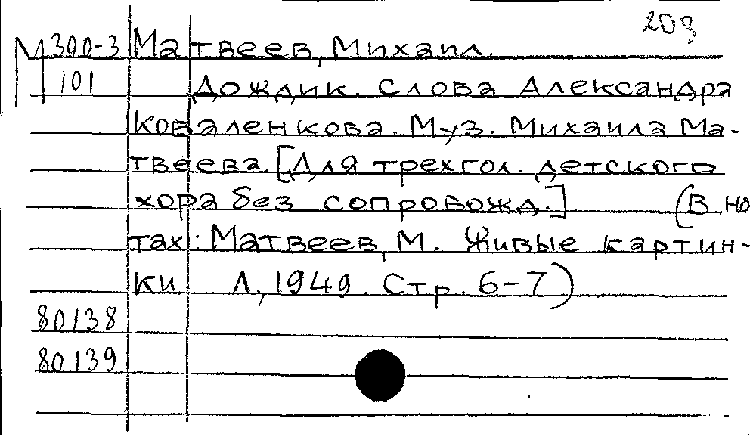 203
М 300-3 Матвеев, Михаил.
101 Дождик. Слова Александра
Коваленкова. Муз. Михаила Ма-
твеева. [Для трехгол. детского
хора без сопровожд.] (В но
тах: Матвеев, М. Живые картин-
ки Л., 1949. Стр. 6-7)
80138
80139